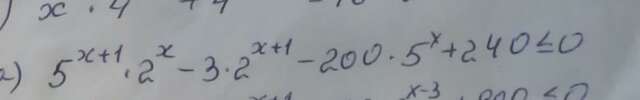 x · 4
2) 5^{x+1} · 2^x - 3 · 2^{x+1} - 200 · 5^x + 240 ≤ 0
x-3